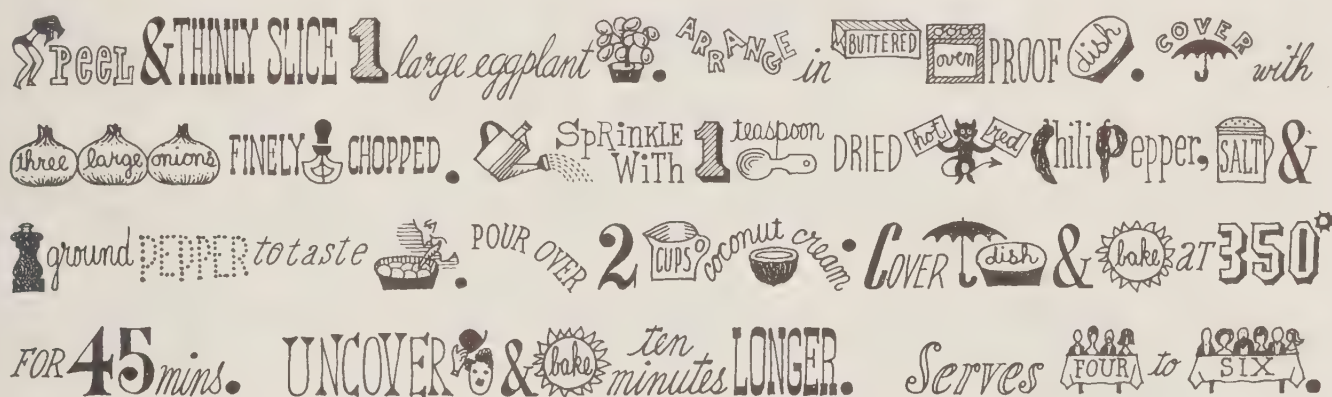 PEEL & THINLY SLICE 1 large eggplant. ARRANGE in BUTTERED oven PROOF dish. COVER with
three large onions FINELY CHOPPED. SPRINKLE WITH 1 teaspoon DRIED hot red Chili Pepper, SALT &
ground PEPPER to taste. POUR OVER 2 CUPS coconut cream. COVER dish & bake AT 350°
FOR 45 mins. UNCOVER & bake ten minutes LONGER. Serves FOUR to SIX.